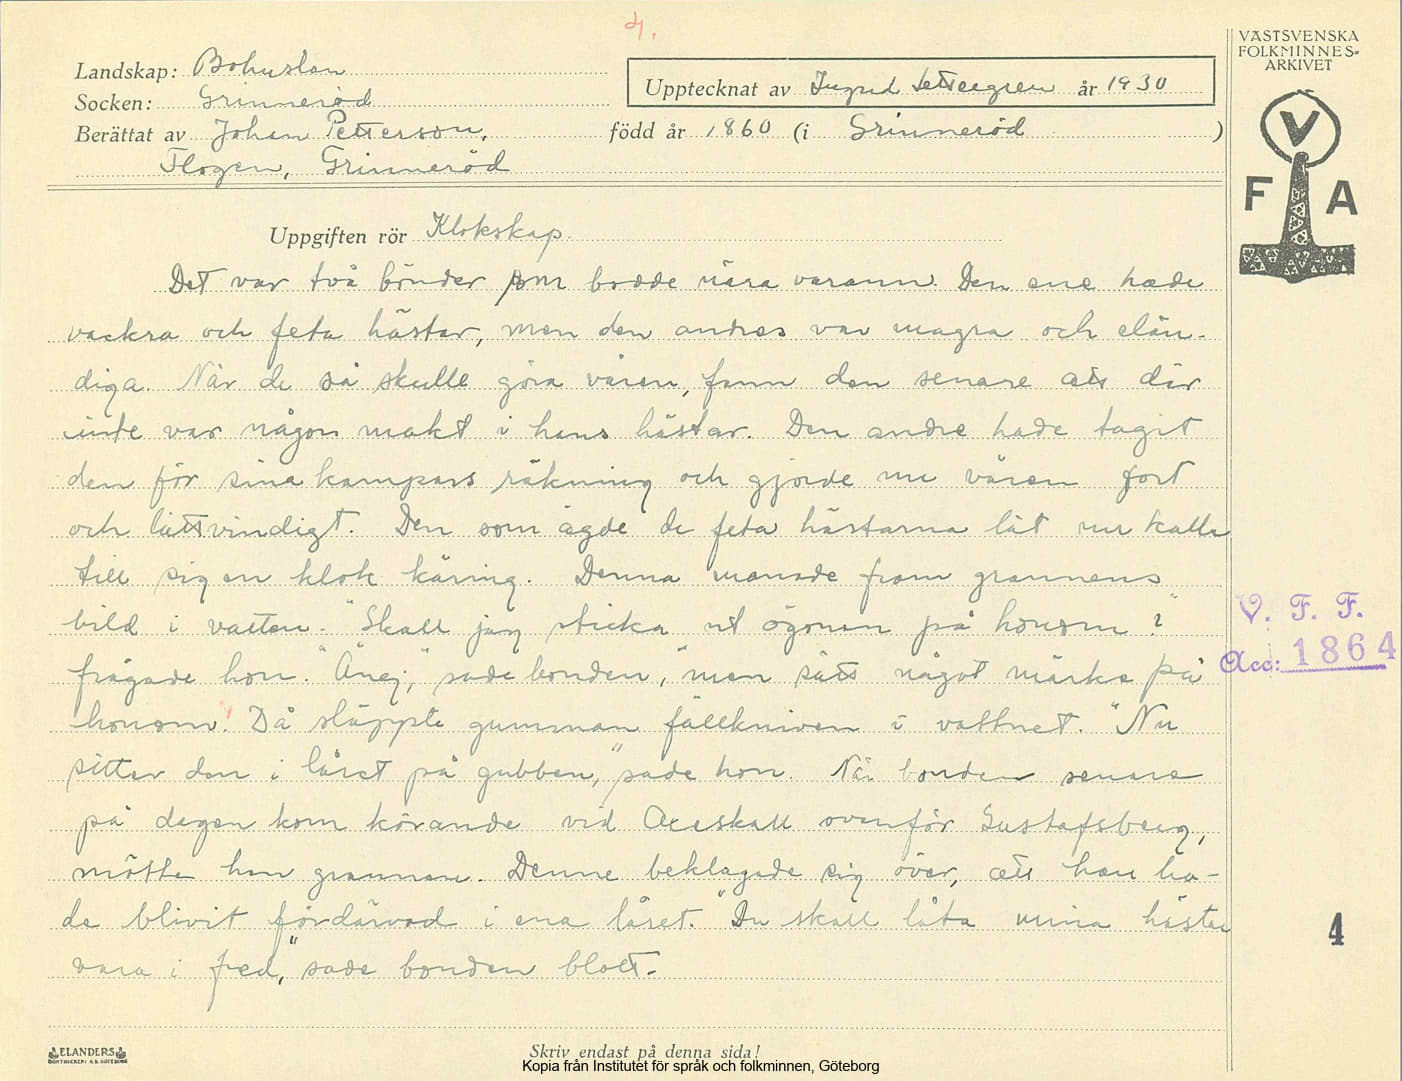 4.
VÄSTSVENSKA
FOLKMINNES-
ARKIVET
Landskap: Bohuslän
Socken: Grinneröd
Upptecknat av Ingrid Settergren år 1930
Berättat av Johan Petterson, född år 1860 (i Grinneröd )
Flogen, Grinneröd
V
F A
Uppgiften rör Klokskap.
Det var två bönder som bodde nära varann. Den ene hade
vackra och feta hästar, men den andres var magra och elän-
diga. När de så skulle göra våren, fann den senare att där
inte var någon makt i hans hästar. Den andre hade tagit
den för sina kampars räkning och gjorde nu våren fort
och lättvindigt. Den som ägde de feta hästarna lät nu kalla
till sig en klok käring. Denna manade fram grannens
bild i vatten. "Skall jag sticka ut ögonen på honom?"
frågade hon. "Ånej," sade bonden, "men sätt något märke på
honom!" Då släppte gumman fällkniven i vattnet. "Nu
sitter den i låret på gubben," sade hon. När bonden senare
på dagen kom körande vid ovanför Gustafsberg,
mötte han grannen. Denne beklagade sig över, att han ha-
de blivit fördärvad i ena låret. "Du skall låta mina hästar
vara i fred," sade bonden blott.
V. F. F.
Acc: 1864
4
ELANDERS
BOKTRYCKERI A.B. GÖTEBORG
Skriv endast på denna sida!
Kopia från Institutet för språk och folkminnen, Göteborg